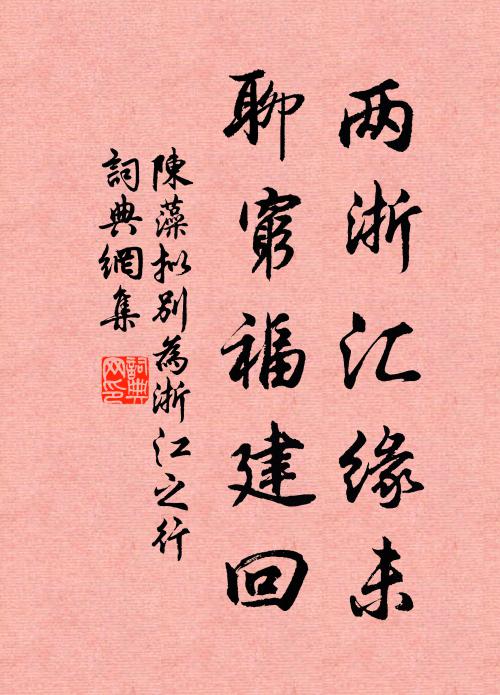 两浙江缘未
聊窮福建回
陳藻拟别為浙江之行
詞典網集
詞典
网印